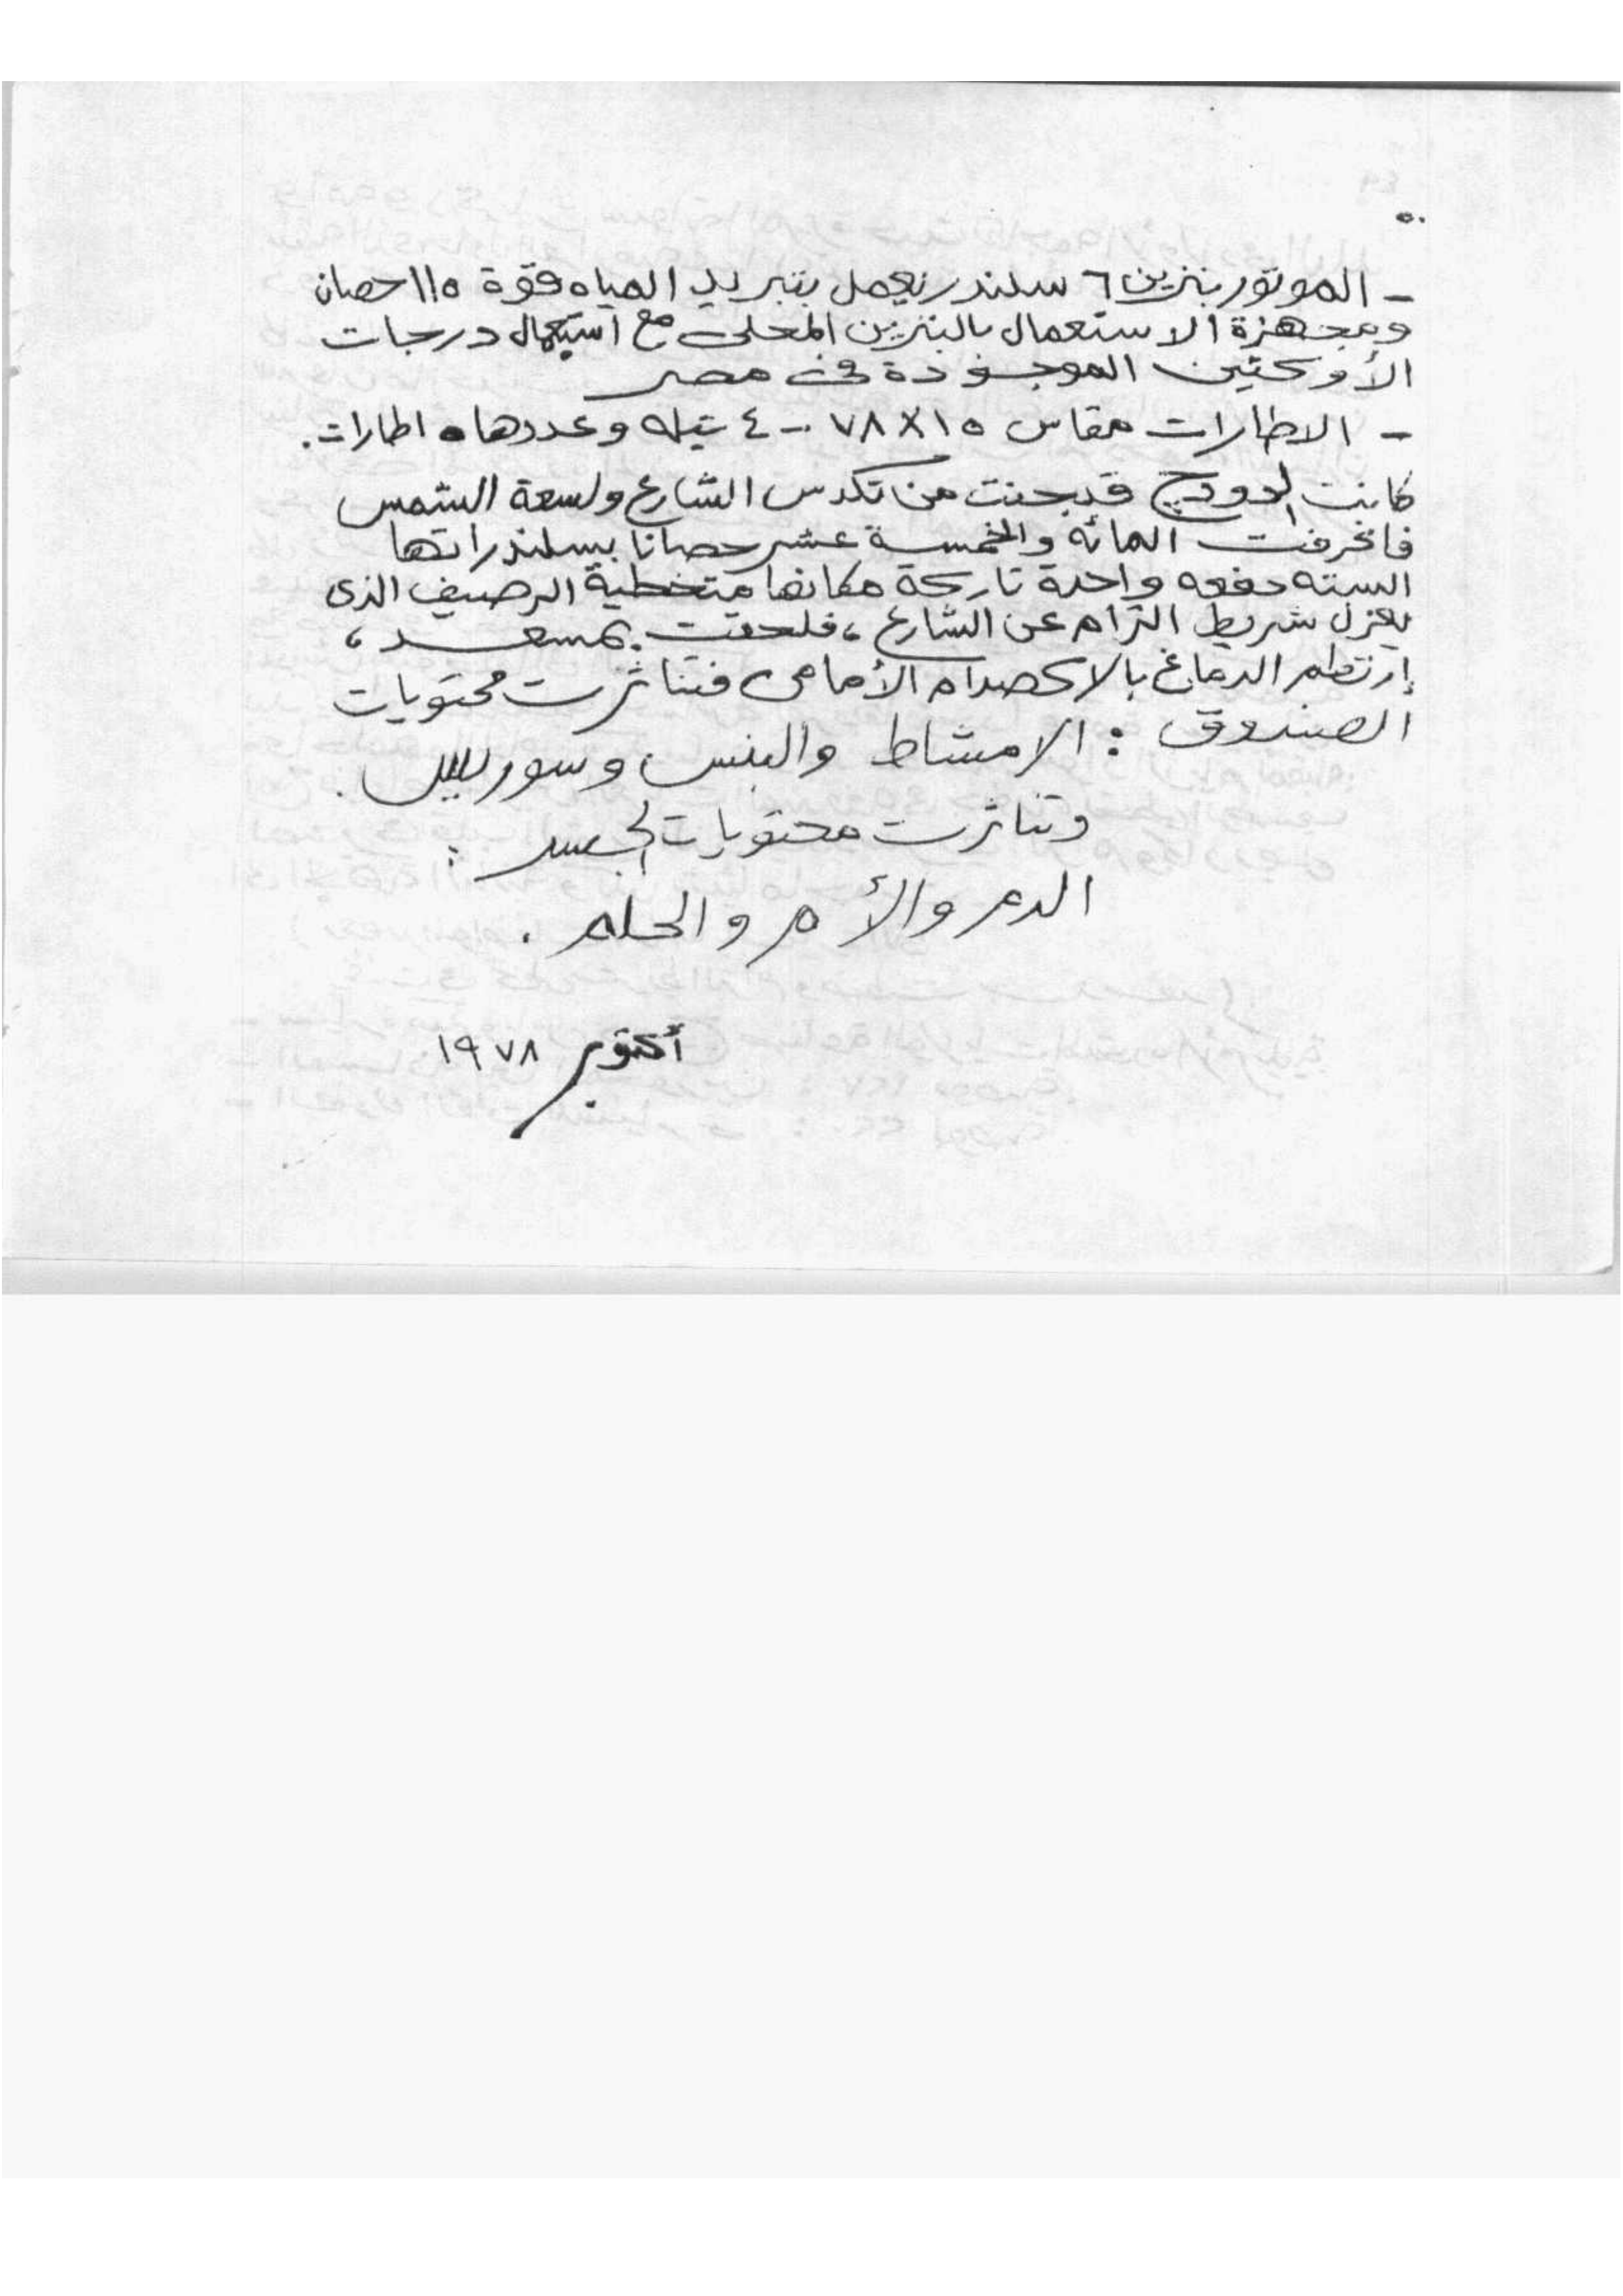 ٥٠
– الموتور بنزين ٦ سلندر يعمل بتبريد المياه وقوة ١١٥ حصان
ومجهزة الاستعمال بالبنزين المحلى مع استعمال درجات
الأوكتين الموجودة فى مصر
– الاطارات مقاس ١٥×٧٨ – ٤ تيله وعددها ٥ اطارات.
كانت الدودچ قد جنت من تكدس الشارع ولسعة الشمس
فانحرفت المائه والخمسة عشر حصانا بسلندراتها
السته دفعه واحدة تاركة مكانها متخطية الرصيف الذى
يعزل شريط الترام عن الشارع ، فلحقت بمسعد ،
إرتطم الدماغ بالاكصدام الأمامى فتناثرت محتويات
الصندوق : الامشاط والبنس وسور .
وتناثرت محتويات الجسد :
الدم والأم والحلم .
أكتوبر ١٩٧٨